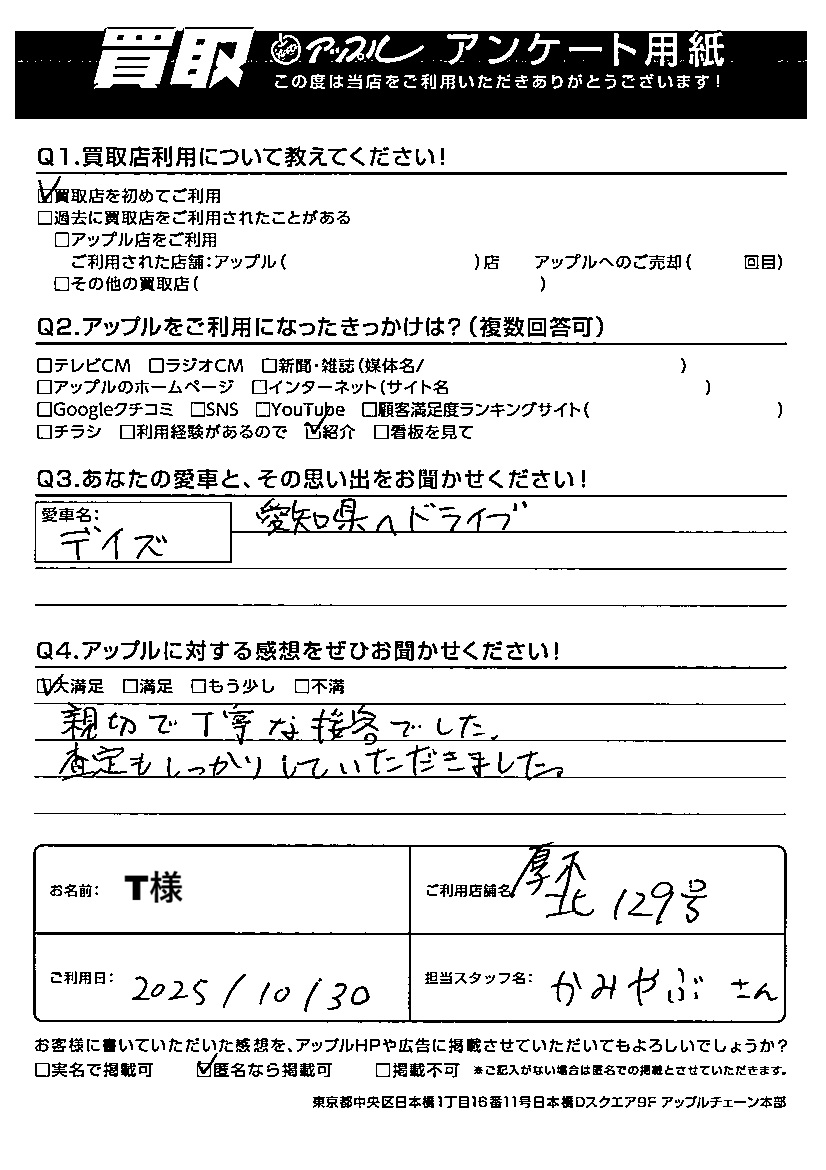 買取 アップル アンケート用紙
この度は当店をご利用いただきありがとうございます!
Q1.買取店利用について教えてください!
☑買取店を初めてご利用
□過去に買取店をご利用されたことがある
□アップル店をご利用
ご利用された店舗:アップル( )店 アップルへのご売却( 回目)
□その他の買取店( )
Q2.アップルをご利用になったきっかけは?(複数回答可)
□テレビCM □ラジオCM □新聞・雑誌(媒体名/ )
□アップルのホームページ □インターネット(サイト名 )
□Googleクチコミ □SNS □YouTube □顧客満足度ランキングサイト( )
□チラシ □利用経験があるので ☑紹介 □看板を見て
Q3.あなたの愛車と、その思い出をお聞かせください!
愛車名:
デイズ
愛知県へドライブ
Q4.アップルに対する感想をぜひお聞かせください!
☑大満足 □満足 □もう少し □不満
親切で丁寧な接客でした。
査定もしっかりしていただきました。
お名前: T様
ご利用店舗名: 厚木北129号
ご利用日: 2025/10/30
担当スタッフ名: かみやぶさん
お客様に書いていただいた感想を、アップルHPや広告に掲載させていただいてもよろしいでしょうか?
□実名で掲載可 ☑匿名なら掲載可 □掲載不可 ※ご記入がない場合は匿名での掲載とさせていただきます。
東京都中央区日本橋1丁目16番11号日本橋Dスクエア9F アップルチェーン本部